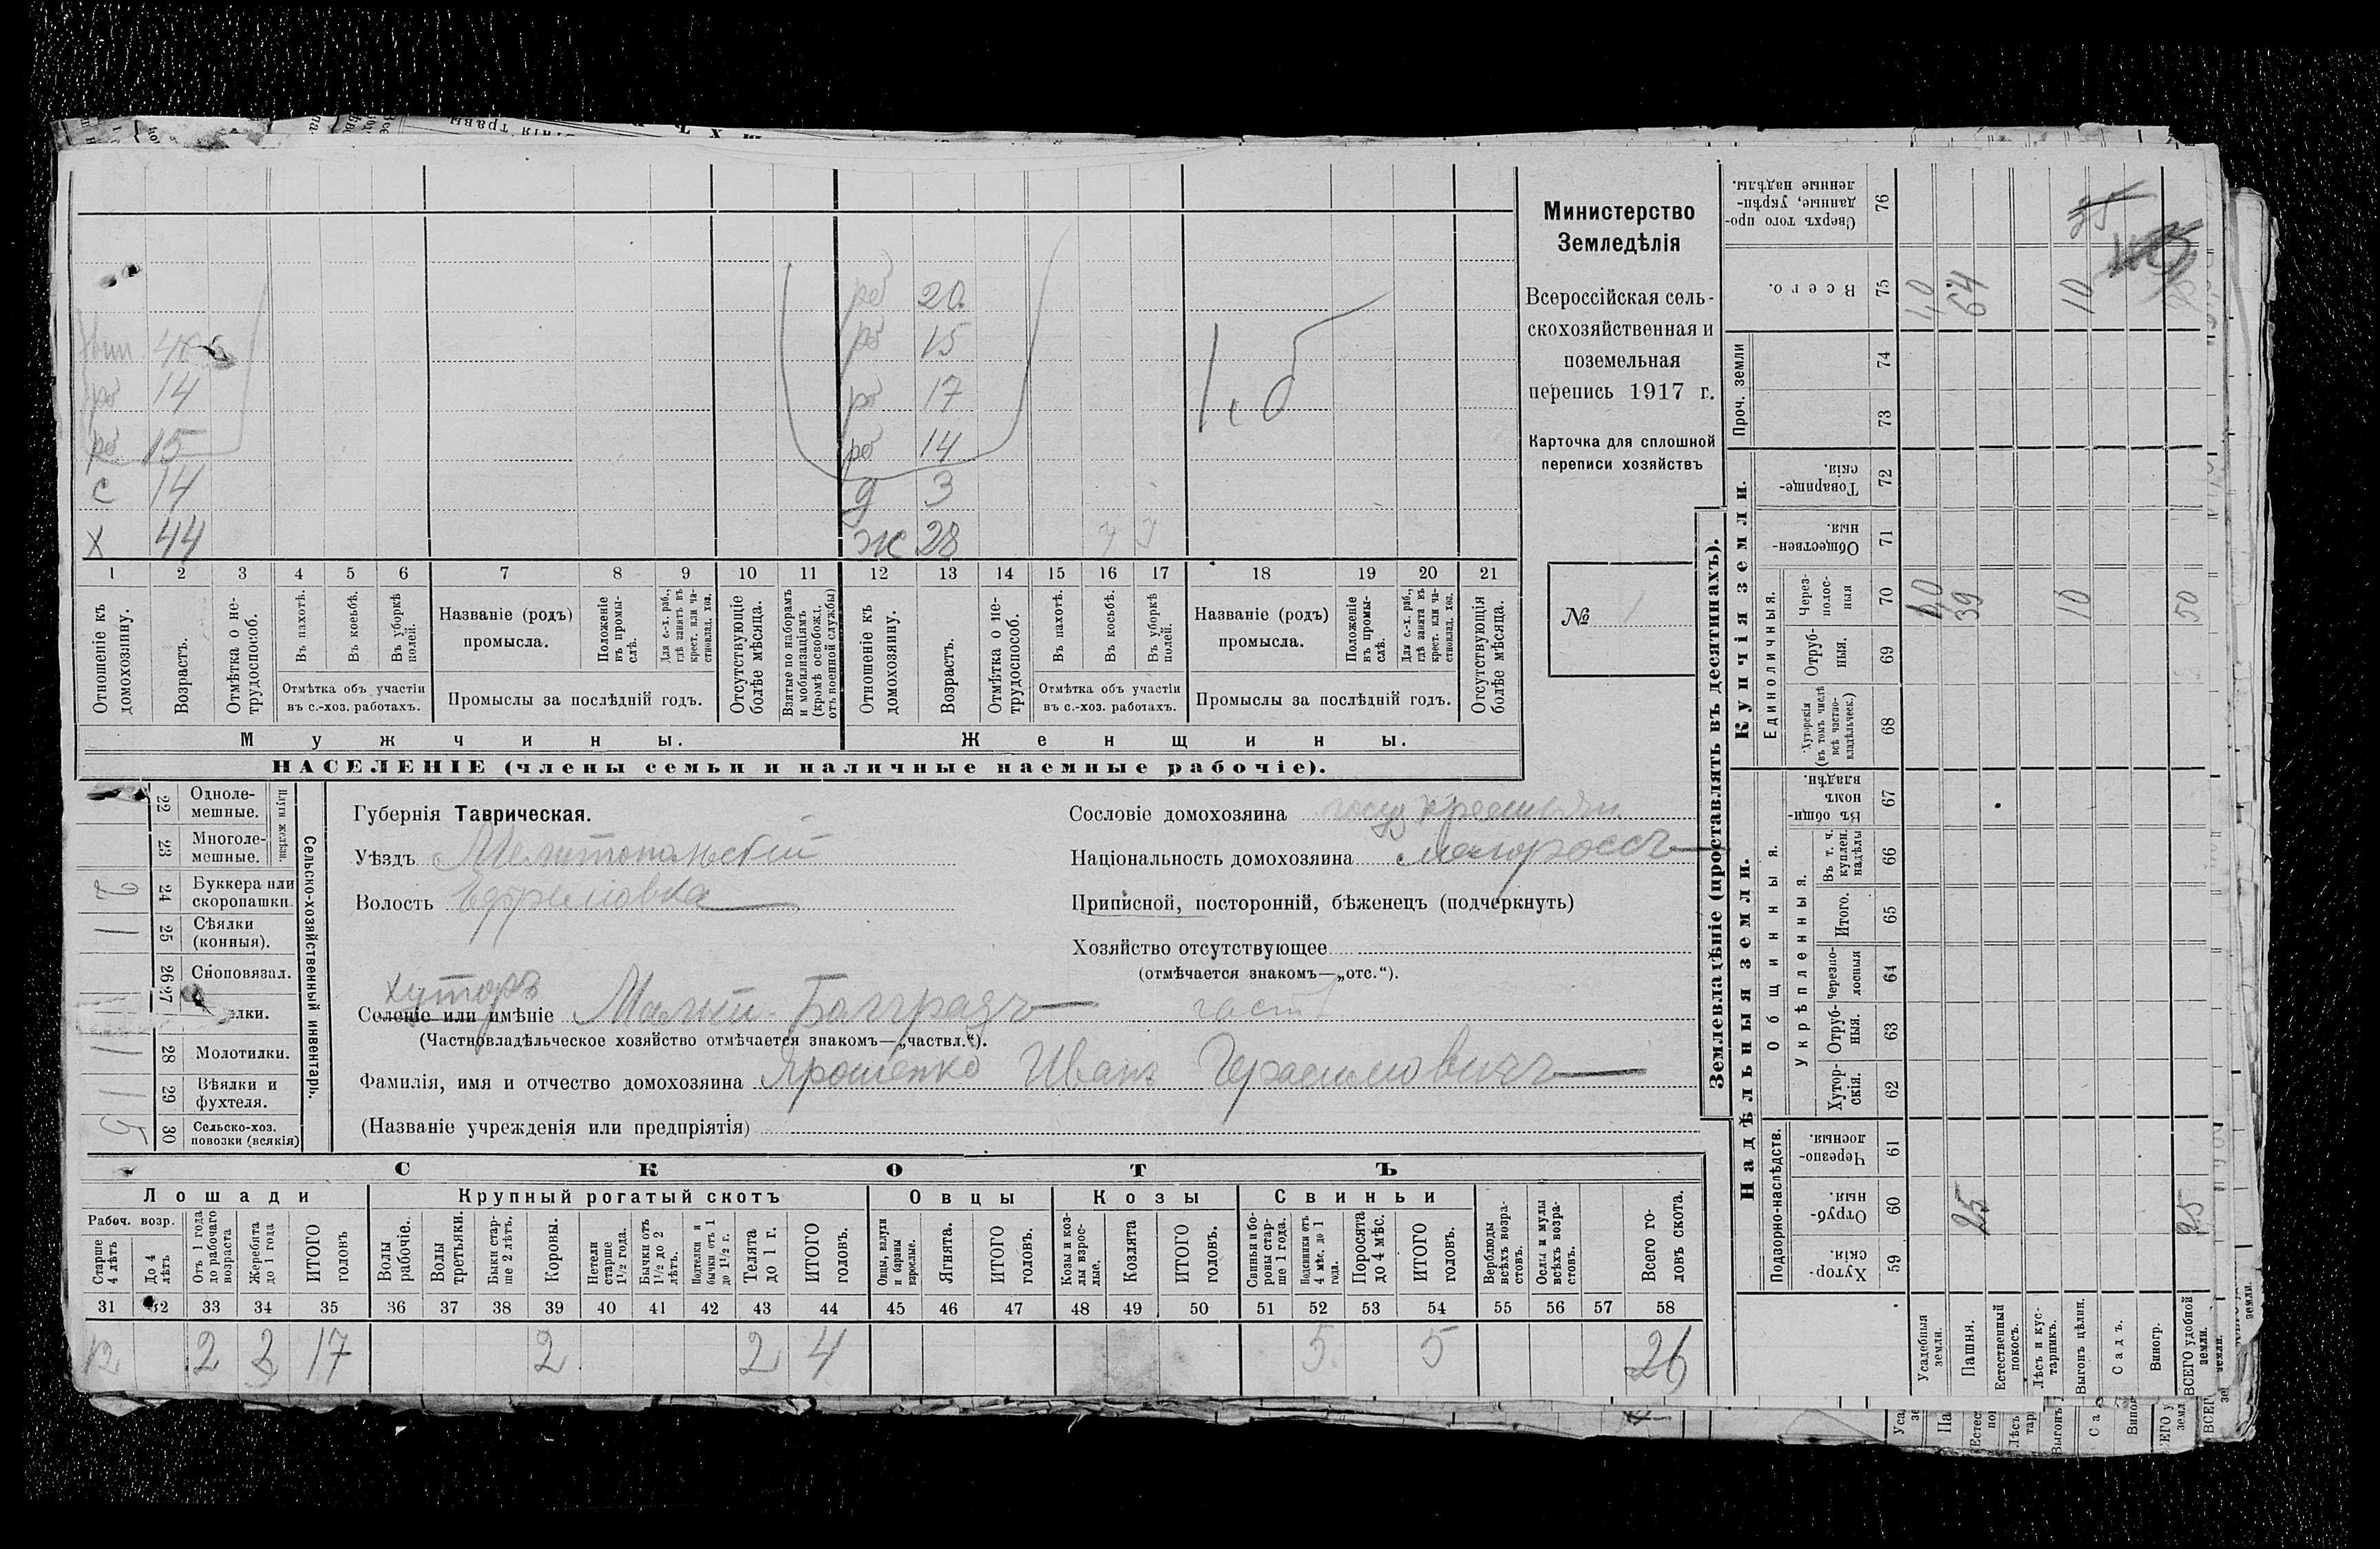 Министерство
Земледѣлія
Всероссійская сель-
скохозяйственная и
поземельная
перепись 1917 г.
Карточка для сплошной
переписи хозяйствъ
№ 1
20
15
14 17
15 14
с 14 д 3
х 44 ж 28
1 2 3 4 5 6 7 8 9 10 11 12 13 14 15 16 17 18 19 20 21
Отношеніе къ домохозяину.
Возрастъ.
Отмѣтка о не-трудоспособ.
Въ пахотѣ.
Въ косьбѣ.
Въ уборкѣ полей.
Отмѣтка объ участіи
въ с.-хоз. работахъ.
Названіе (родъ)
промысла.
Положеніе въ промы-слѣ.
Для с.-х. раб., гдѣ занятъ въ крест. или ча-стновлад. хоз.
Промыслы за послѣдній годъ.
Отсутствующіе болѣе мѣсяца.
Взятые по наборамъ и мобилизаціямъ (кромѣ освобожд. отъ военной службы)
Отношеніе къ домохозяину.
Возрастъ.
Отмѣтка о не-трудоспособ.
Въ пахотѣ.
Въ косьбѣ.
Въ уборкѣ полей.
Отмѣтка объ участіи
въ с.-хоз. работахъ.
Названіе (родъ)
промысла.
Положеніе въ промы-слѣ.
Для с.-х. раб., гдѣ занята въ крест. или ча-стновлад. хоз.
Промыслы за послѣдній годъ.
Отсутствующія болѣе мѣсяца.
Мужчины. Женщины.
НАСЕЛЕНІЕ (члены семьи и наличные наемные рабочіе).
Сельско-хозяйственный инвентарь.
Плуги желѣзн.
22 Одноле-мешные.
23 Многоле-мешные.
2 24 Буккера или скоропашки.
1 25 Сѣялки (конныя).
26 Сноповязал.
27 лки.
1 28 Молотилки.
1 29 Вѣялки и фухтеля.
5 30 Сельско-хоз. повозки (всякія)
Губернія Таврическая.
Уѣздъ Мелитопольскій
Волость Ефремовка
хуторъ
Селеніе или имѣніе
(Частновладѣльческое хозяйство отмѣчается знакомъ—„частвл.“).
Фамилія, имя и отчество домохозяина Ярошенко Иванъ Герасимовичъ
(Названіе учрежденія или предпріятія)
Сословіе домохозяина госуд крестьян.
Національность домохозяина малороссъ
Приписной, посторонній, бѣженецъ (подчеркнуть)
Хозяйство отсутствующее
(отмѣчается знакомъ—„отс.“).
СКОТЪ
Лошади Крупный рогатый скотъ Овцы Козы Свиньи
Рабоч. возр.
Старше 4 лѣтъ
До 4 лѣтъ
Отъ 1 года до рабочаго возраста
Жеребята до 1 года
ИТОГО головъ
Волы рабочіе.
Волы третьяки.
Быки стар-ше 2 лѣтъ.
Коровы.
Нетели старше 1½ года.
Бычки отъ 1½ до 2 лѣтъ.
Подтелки и бычки отъ 1 до 1½ г.
Телята до 1 г.
ИТОГО головъ.
Овцы, валухи и бараны взрослые.
Ягнята.
ИТОГО головъ.
Козы и коз-лы взрос-лые.
Козлята
ИТОГО головъ.
Свиньи и бо-ровы стар-ше 1 года.
Подсвинки отъ 4 мѣс. до 1 года.
Поросята до 4 мѣс.
ИТОГО головъ.
Верблюды всѣхъ возра-стовъ.
Ослы и мулы всѣхъ возра-стовъ.
Всего го-ловъ скота.
31 32 33 34 35 36 37 38 39 40 41 42 43 44 45 46 47 48 49 50 51 52 53 54 55 56 57 58
12 2 3 17 2 2 4 5 5 26
Землевладѣніе (проставлять въ десятинахъ).
Надѣльныя земли. Купчія земли.
Подворно-наслѣдств.
Общинныя.
Укрѣпленныя.
Единоличныя.
Проч. земли
59 Хутор-скія.
60 Отруб-ныя.
61 Черезпо-лосныя
62 Хутор-скія.
63 Отруб-ныя.
64 Черезпо-лосныя
65 Итого.
66 Въ т. ч. куплен. надѣлы
67 Въ общи-номъ владѣн.
68 Хуторскія (въ томъ числѣ всѣ частно-владѣльческ.)
69 Отруб-ныя.
70 Через-полос-ныя
71 Обществен-ныя.
72 Товарище-скія.
73
74
75 Всего.
76 Сверхъ того про-данные, укрѣп-ленные надѣлы.
Усадебныя земли.
Пашня. 25 39 64
Естественный покосъ.
Лѣсъ и кус-тарникъ.
Выгонъ цѣлин. 10 10
Садъ.
Виногр.
ВСЕГО удобной земли. 25 50